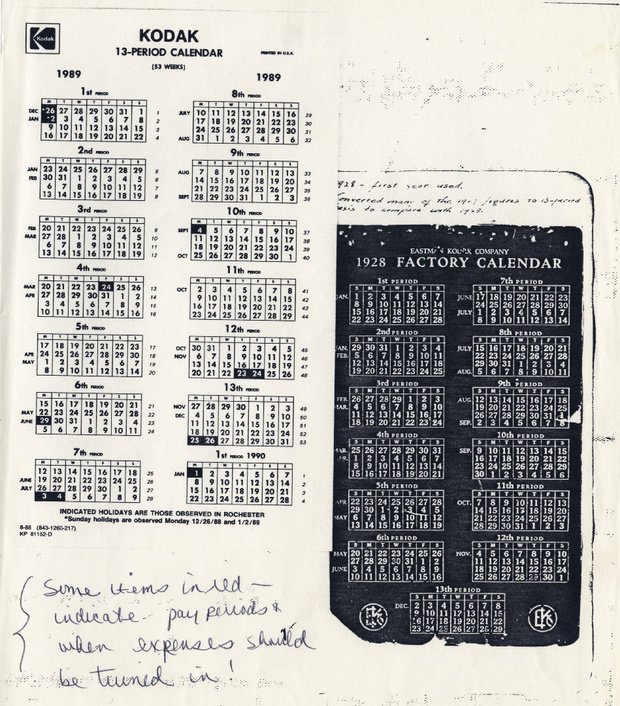 Kodak
KODAK
13-PERIOD CALENDAR
PRINTED IN U.S.A.
(53 WEEKS)
1989
1989
1st PERIOD
M T W T F S S
DEC *26 27 28 29 30 31 1 1
JAN *2 3 4 5 6 7 8 2
9 10 11 12 13 14 15 3
16 17 18 19 20 21 22 4
2nd PERIOD
M T W T F S S
JAN 23 24 25 26 27 28 29 5
FEB 30 31 1 2 3 4 5 6
6 7 8 9 10 11 12 7
13 14 15 16 17 18 19 8
3rd PERIOD
M T W T F S S
FEB 20 21 22 23 24 25 26 9
MAR 27 28 1 2 3 4 5 10
6 7 8 9 10 11 12 11
13 14 15 16 17 18 19 12
4th PERIOD
M T W T F S S
MAR 20 21 22 23 24 25 26 13
APR 27 28 29 30 31 1 2 14
3 4 5 6 7 8 9 15
10 11 12 13 14 15 16 16
5th PERIOD
M T W T F S S
17 18 19 20 21 22 23 17
APR 24 25 26 27 28 29 30 18
MAY 1 2 3 4 5 6 7 19
8 9 10 11 12 13 14 20
6th PERIOD
M T W T F S S
15 16 17 18 19 20 21 21
MAY 22 23 24 25 26 27 28 22
JUNE 29 30 31 1 2 3 4 23
5 6 7 8 9 10 11 24
7th PERIOD
M T W T F S S
12 13 14 15 16 17 18 25
JUNE 19 20 21 22 23 24 25 26
JULY 26 27 28 29 30 1 2 27
3 4 5 6 7 8 9 28
8th PERIOD
M T W T F S S
JULY 10 11 12 13 14 15 16 29
17 18 19 20 21 22 23 30
24 25 26 27 28 29 30 31
AUG 31 1 2 3 4 5 6 32
9th PERIOD
M T W T F S S
AUG 7 8 9 10 11 12 13 33
14 15 16 17 18 19 20 34
21 22 23 24 25 26 27 35
SEPT 28 29 30 31 1 2 3 36
10th PERIOD
M T W T F S S
SEPT 4 5 6 7 8 9 10 37
11 12 13 14 15 16 17 38
18 19 20 21 22 23 24 39
OCT 25 26 27 28 29 30 1 40
11th PERIOD
M T W T F S S
OCT 2 3 4 5 6 7 8 41
9 10 11 12 13 14 15 42
16 17 18 19 20 21 22 43
23 24 25 26 27 28 29 44
12th PERIOD
M T W T F S S
OCT 30 31 1 2 3 4 5 45
NOV 6 7 8 9 10 11 12 46
13 14 15 16 17 18 19 47
20 21 22 23 24 25 26 48
13th PERIOD
M T W T F S S
NOV 27 28 29 30 1 2 3 49
DEC 4 5 6 7 8 9 10 50
11 12 13 14 15 16 17 51
18 19 20 21 22 23 24 52
25 26 27 28 29 30 31 53
1st PERIOD 1990
M T W T F S S
JAN 1 2 3 4 5 6 7 1
8 9 10 11 12 13 14 2
15 16 17 18 19 20 21 3
22 23 24 25 26 27 28 4
INDICATED HOLIDAYS ARE THOSE OBSERVED IN ROCHESTER
*Sunday holidays are observed Monday 12/26/88 and 1/2/89
8-88 (843-1260-217)
KP 81152-D
Some items in red —
indicate pay periods &
when expenses should
be turned in!
1928 - first year used.
Converted many of the figures to 13-period
basis to compare with 1928.
EASTMAN KODAK COMPANY
1928 FACTORY CALENDAR
1st PERIOD
S M T W T F S
JAN. 1 2 3 4 5 6 7
8 9 10 11 12 13 14
15 16 17 18 19 20 21
22 23 24 25 26 27 28
2nd PERIOD
S M T W T F S
JAN. 29 30 31 1 2 3 4
FEB. 5 6 7 8 9 10 11
12 13 14 15 16 17 18
19 20 21 22 23 24 25
3rd PERIOD
S M T W T F S
FEB. 26 27 28 29 1 2 3
MAR. 4 5 6 7 8 9 10
11 12 13 14 15 16 17
18 19 20 21 22 23 24
4th PERIOD
S M T W T F S
MAR. 25 26 27 28 29 30 31
1 2 3 4 5 6 7
8 9 10 11 12 13 14
15 16 17 18 19 20 21
5th PERIOD
S M T W T F S
APR 22 23 24 25 26 27 28
MAY 29 30 1 2 3 4 5
6 7 8 9 10 11 12
13 14 15 16 17 18 19
6th PERIOD
S M T W T F S
MAY 20 21 22 23 24 25 26
27 28 29 30 31 1 2
JUNE 3 4 5 6 7 8 9
10 11 12 13 14 15 16
7th PERIOD
S M T W T F S
JUNE 17 18 19 20 21 22 23
24 25 26 27 28 29 30
JULY 1 2 3 4 5 6 7
8 9 10 11 12 13 14
8th PERIOD
S M T W T F S
JULY 15 16 17 18 19 20 21
22 23 24 25 26 27 28
29 30 31 1 2 3 4
AUG. 5 6 7 8 9 10 11
9th PERIOD
S M T W T F S
AUG. 12 13 14 15 16 17 18
19 20 21 22 23 24 25
26 27 28 29 30 31 1
SEP. 2 3 4 5 6 7 8
10th PERIOD
S M T W T F S
SEP. 9 10 11 12 13 14 15
16 17 18 19 20 21 22
23 24 25 26 27 28 29
30 1 2 3 4 5 6
11th PERIOD
S M T W T F S
OCT. 7 8 9 10 11 12 13
14 15 16 17 18 19 20
21 22 23 24 25 26 27
28 29 30 31 1 2 3
12th PERIOD
S M T W T F S
NOV. 4 5 6 7 8 9 10
11 12 13 14 15 16 17
18 19 20 21 22 23 24
25 26 27 28 29 30 1
13th PERIOD
S M T W T F S
DEC. 2 3 4 5 6 7 8
9 10 11 12 13 14 15
16 17 18 19 20 21 22
23 24 25 26 27 28 29
EK